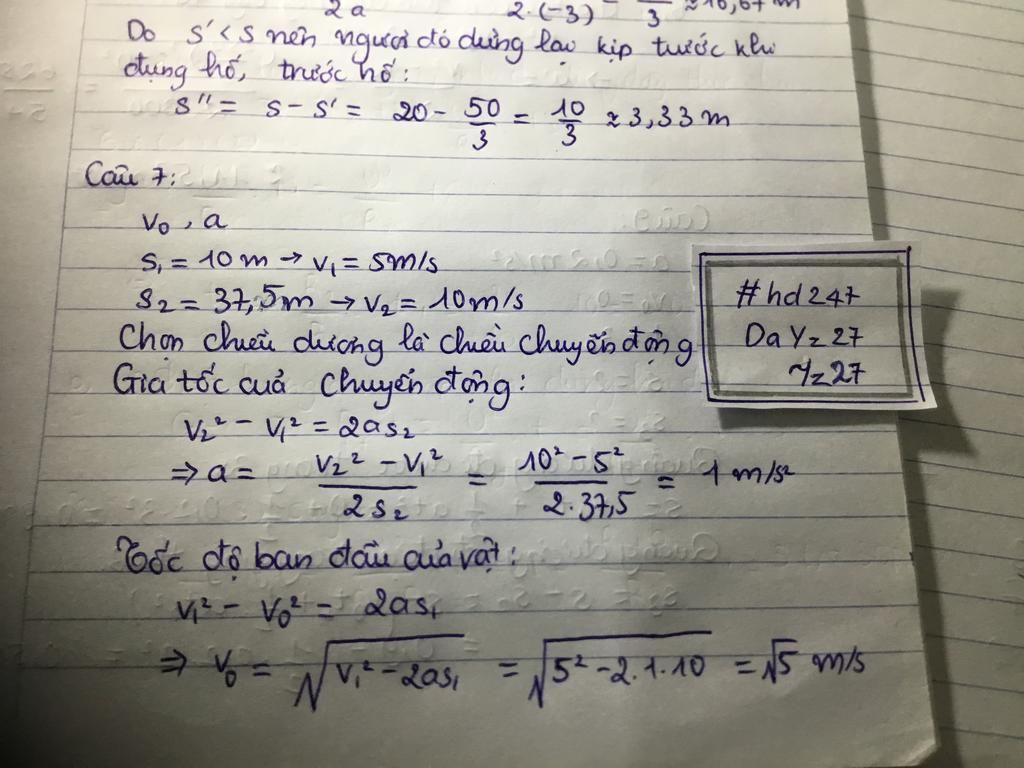 2a 2.(-3) 3 ≈ 16,67 m
Do s' < s nên người đó dừng lại kịp tước khi
đụng hố, trước hố:
s'' = s - s' = 20 - 50/3 = 10/3 ≈ 3,33 m
Câu 7:
v₀, a
s₁ = 10 m → v₁ = 5m/s
s₂ = 37,5m → v₂ = 10 m/s
Chọn chiều dương là chiều chuyển động
Gia tốc cuả chuyển động:
v₂² - v₁² = 2as₂
⇒ a = (v₂² - v₁²)/(2s₂) = (10² - 5²)/(2.37,5) = 1 m/s²
Tốc độ ban đầu của vật:
v₁² - v₀² = 2as₁
⇒ v₀ = √(v₁² - 2as₁) = √(5² - 2.1.10) = √5 m/s
#hd247
DaYz27
Yz27